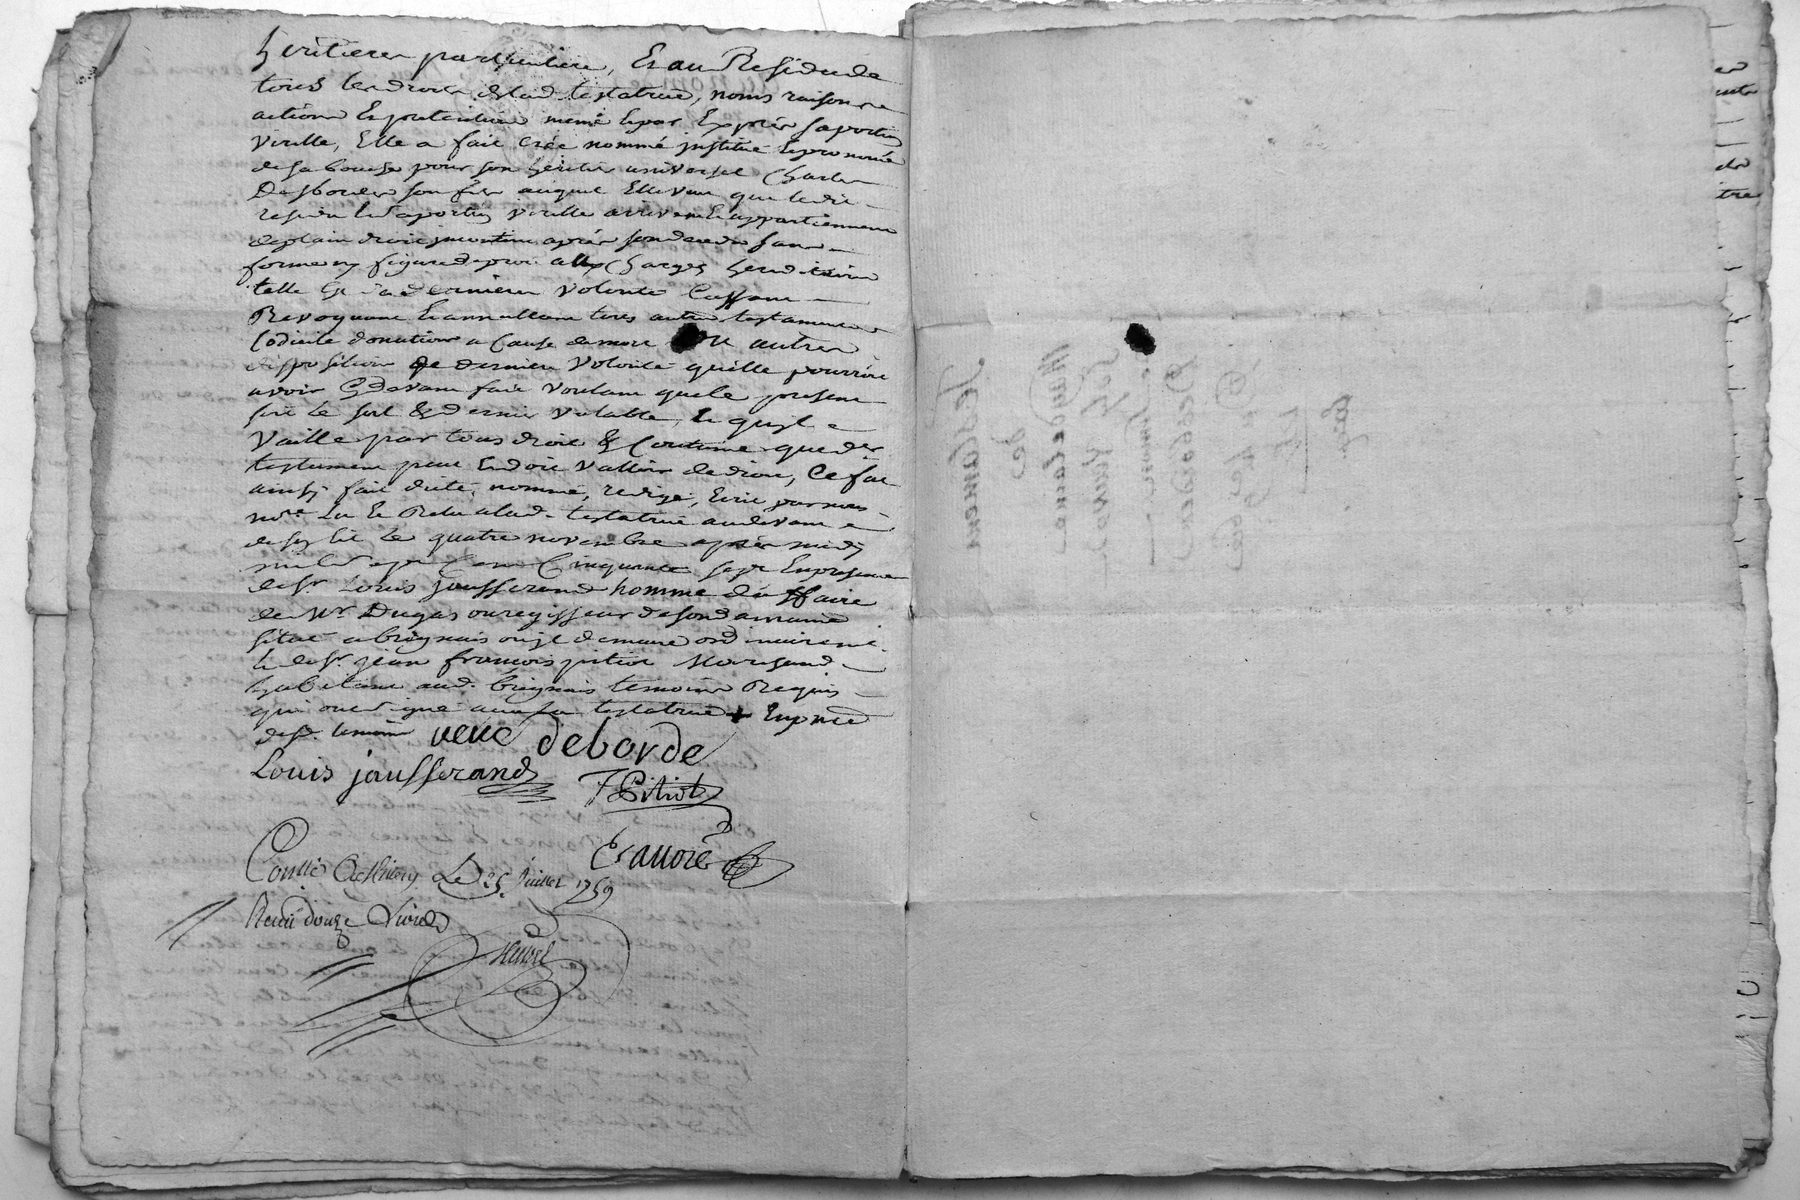 heritiere particuliere, Et au Residu de
tous les droits de lad. testatrice, noms raisons
actions Et pretentions meme Expres sa portion
virille, Elle a fait Crée nommé jnstitué Et prononcé
de sa bouche pour son heritier universel Charles
Desbordes son fils auquel Elle veut que ledit
residu Et sa portion virille arrivent Et appartiennent
de plain droit jncontinent apres son deceds sans
forme ny figure de proces aux Charges hereditaires
telle Est sa derniere volonté Cassant
Revoquant Et annullant tous autres testaments
Codicile donations a Cause de mort ou autres
disposition de derniere volonté quelle pourroit
avoir Cy devant fait voulant que le present
soit le seul & dernier valable, Et quil
vaille par tous droit & Coutume que de
testament peut Et doit valloir de droit, Ce fut
ainsy fait dicté, nommé, redigé, Ecrit par nous
no.re Lu Et Relu a lad. testatrice au devant
le quatre novembre apres midy
mil sept Cent Cinquante sept En presence
de sr. Louis jausserand homme d'affaire
de Mr. Dugas ou regisseur de son domaine
situé a brignais ou jl demeure ordinairement
Et de sr. jean françois pitiot Marchand
habitant aud. brignais temoins Requis
qui ont signé avec la testatrice + En pnce
desd. temoins veve deborde
Louis jausserand
JF Pitiot
Cravoré
Conllé Le 25. Juillet 1759
Reçu douze Livres